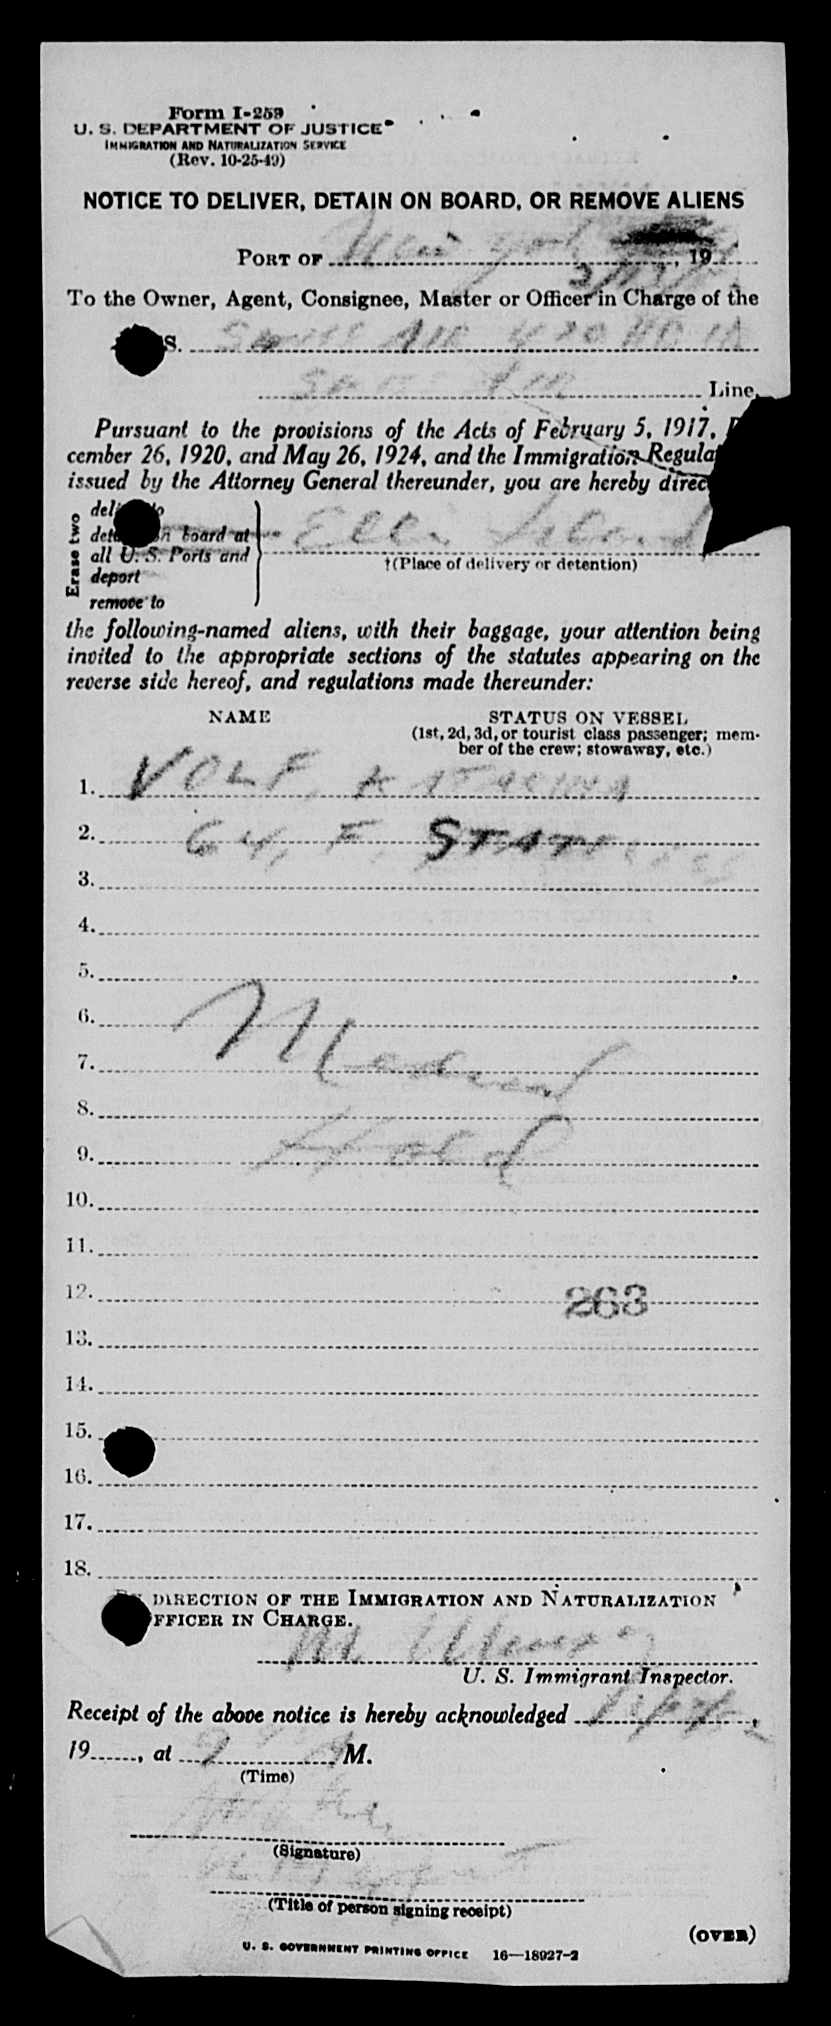 Form I-259
U. S. DEPARTMENT OF JUSTICE
IMMIGRATION AND NATURALIZATION SERVICE
(Rev. 10-25-49)
NOTICE TO DELIVER, DETAIN ON BOARD, OR REMOVE ALIENS
PORT OF New York, 19
To the Owner, Agent, Consignee, Master or Officer in Charge of the
S. Swiss Air
Swiss Air Line,
Pursuant to the provisions of the Acts of February 5, 1917,
cember 26, 1920, and May 26, 1924, and the Immigration Regula
issued by the Attorney General thereunder, you are hereby direc
Erase two
on board at Ellis Island
all U. S. Ports and
†(Place of delivery or detention)
deport
remove to
the following-named aliens, with their baggage, your attention being
invited to the appropriate sections of the statutes appearing on the
reverse side hereof, and regulations made thereunder:
NAME STATUS ON VESSEL
(1st, 2d, 3d, or tourist class passenger; mem-
ber of the crew; stowaway, etc.)
1. VOLF, KATARINA
2. 64, F, STATELESS
3.
4.
5.
6.
7. Medical
8.
9. Hold
10.
11.
12. 263
13.
14.
15.
16.
17.
18.
BY DIRECTION OF THE IMMIGRATION AND NATURALIZATION
OFFICER IN CHARGE.
M
U. S. Immigrant Inspector.
Receipt of the above notice is hereby acknowledged
19......, at M.
(Time)
(Signature)
(Title of person signing receipt)
(OVER)
U. S. GOVERNMENT PRINTING OFFICE 16—18927-2